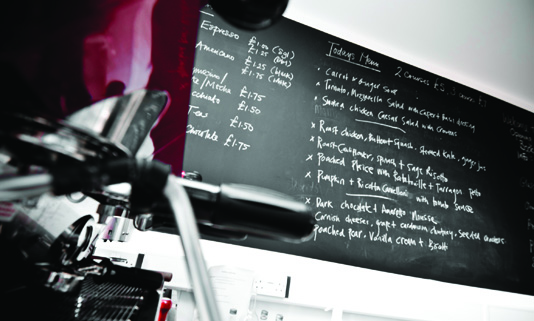 Espresso £1.00 (Sgl)
£1.25 (Dbl)
Americano £1.25 (black)
£1.75 (white)
£1.75
/Mocha £1.50
Tea £1.50
£1.75
Todays Menu
2 courses £5
Carrot + Ginger Soup
Tomato, Mozzarella Salad with Caper + Basil dressing
Smoked chicken Caesar Salad with croutons
Roast chicken, Butternut Squash,
Roast Cauliflower, spinach + Sage Risotto
Poached Plaice with Ratatouille + Tarragon Pesto
Pumpkin + Ricotta Cannelloni with tomato Sauce
Dark chocolate + Amaretto Mousse
Cornish cheeses, grape + cardamom chutney, Seeded crackers
Poached Pear, Vanilla cream +